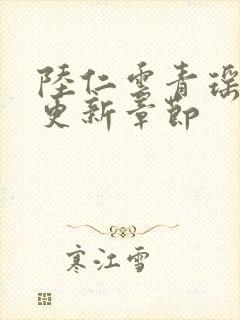 陸仁雲青瑶
更新章節
寒江雪